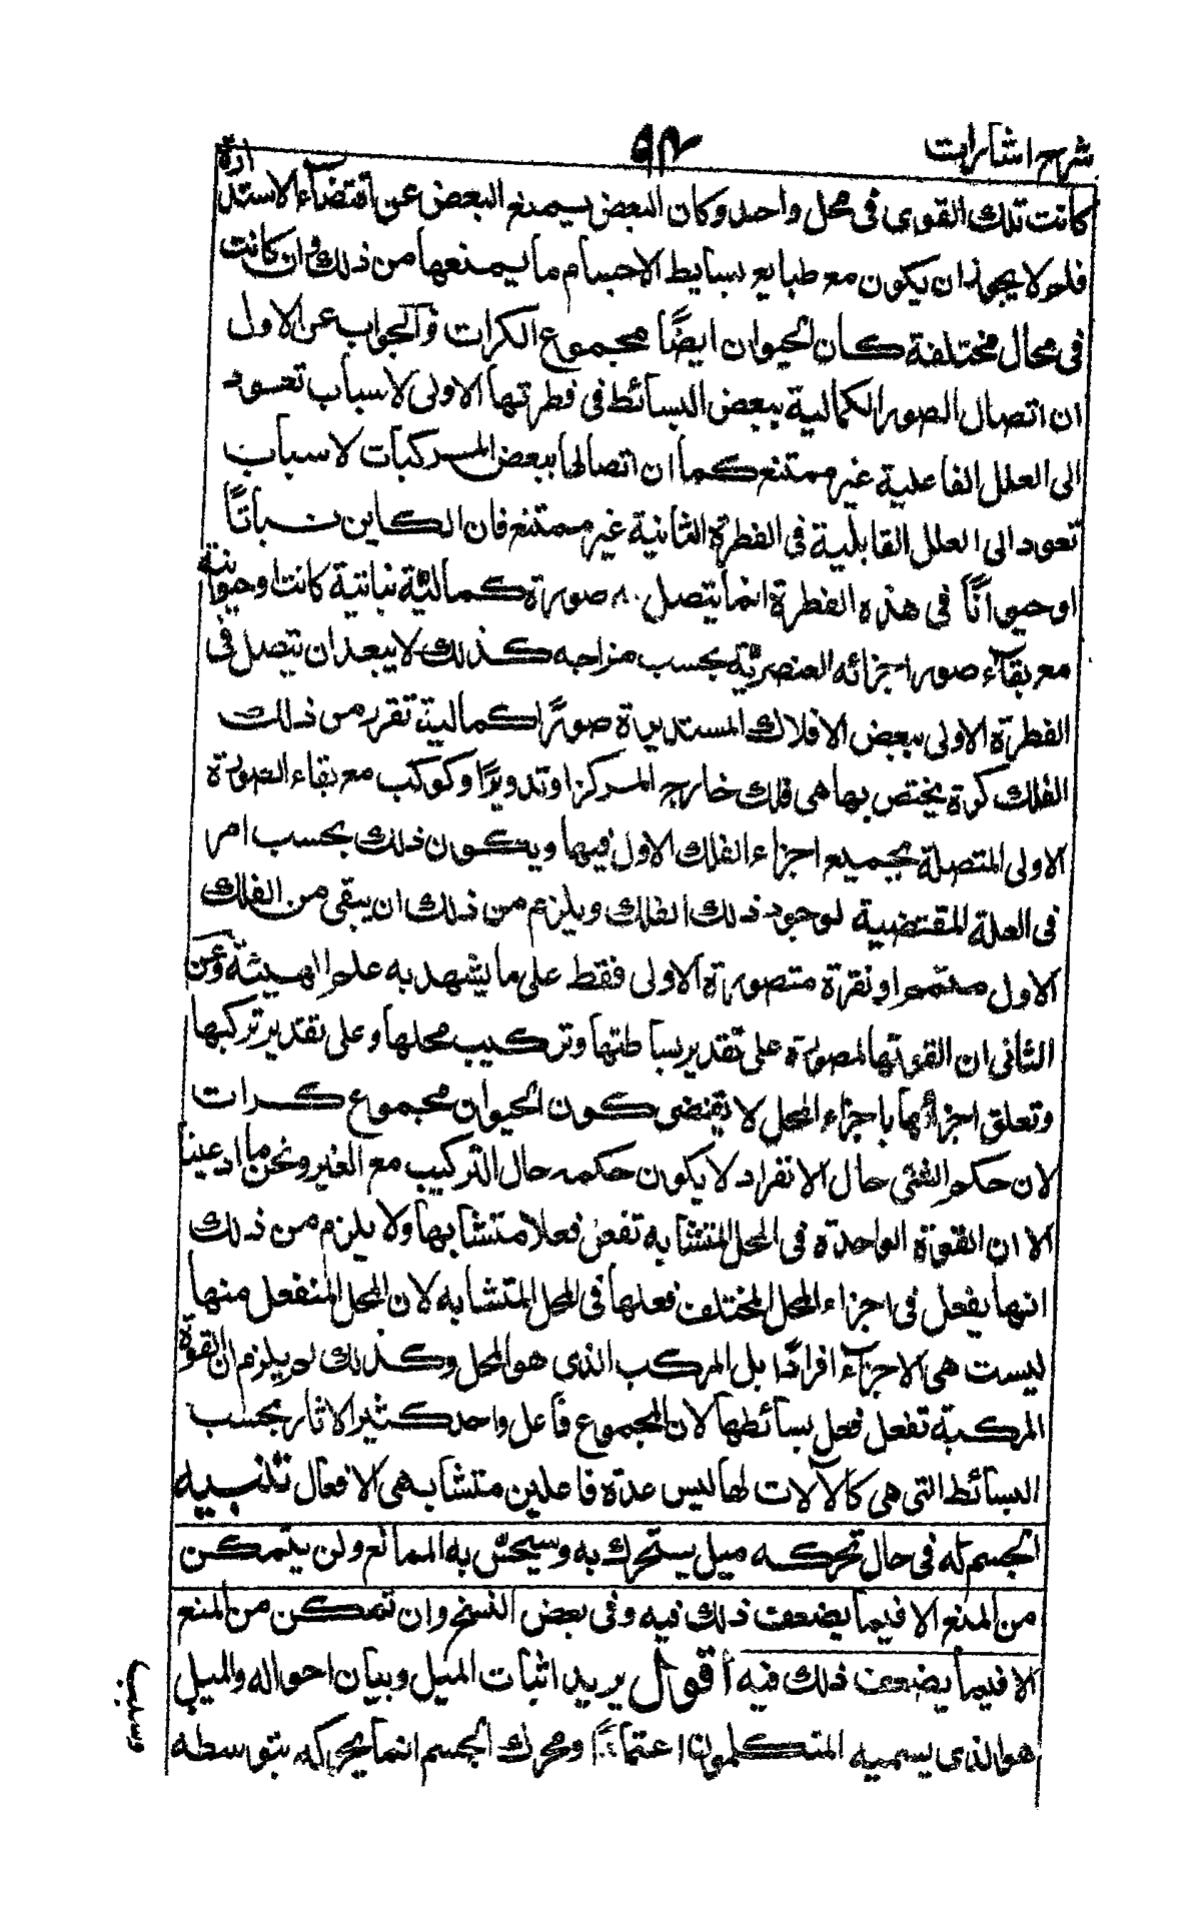 شرح اشارات ٩٢
كانت تلك القوى فى محل واحد وكان البعض يمنع البعض عن اقتضاء الاستدارة
فلم لا يجوز ان يكون مع طبايع بسايط الاجسام ما يمنعها من ذلك وان كانت
فى محال مختلفة كان الحيوان ايضًا مجموع الكرات والجواب عن الاول
ان اتصال الصور الكمالية ببعض البسائط فى فطرتها الاولى لاسباب تعود
الى العلل الفاعلية غير ممتنع كما ان اتصالها ببعض المركبات لاسباب
تعود الى العلل القابلية فى الفطرة الثانية غير ممتنع فان الكاين نباتًا
او حيوانًا فى هذه الفطرة انما يتصل به صورة كمالية نباتية كانت او حيوانية
مع بقاء صور اجزائه العنصرية بحسب مزاجه كذلك لا يبعد ان تتصل فى
الفطرة الاولى ببعض الافلاك المستديرة صورًا كمالية تقرر من ذلك
الفلك كرة يختص بها هى فلك خارج المركز او تدويرًا وكوكب مع بقاء الصورة
الاولى المتصلة بجميع اجزاء الفلك الاول فيها ويكون ذلك بحسب امر
فى العلة المقتضية لوجود ذلك الفلك ويلزم من ذلك ان يبقى من الفلك
الاول متمم او نقرة متصورة الاولى فقط على ما يشهد به علم الهيئة وعن
الثانى ان القوتها لمصورة على تقدير بساطتها وتركيب محلها وعلى تقدير تركبها
وتعلق اجزائها باجزاء المحل لا يقتضى كون الحيوان مجموع كرات
لان حكم الشئ حال الانفراد لا يكون حكمه حال التركيب مع الغير ونحن ما ادعينا
الا ان القوة الواحدة فى المحل المتشابه تفعل فعلا متشابها ولا يلزم من ذلك
انها يفعل فى اجزاء المحل المختلف فعلها فى المحل المتشابه لان المحل المنفعل منها
ليست هى الاجزاء افرادًا بل المركب الذى هو المحل وكذلك لم يلزم ان القوة
المركبة تفعل فعل بسائطها لان المجموع فاعل واحد كثير الاثار بحسب
البسائط التى هى كالآلات لها ليس عدة فاعلين متشابهى الافعال تنبيه
الجسم له فى حال تحركه ميل يتحرك به ويحس به الممانع ولن يتمكن
من المنع الا فيما يضعف ذلك فيه وفى بعض النسخ وان تمكن من المنع
الا فيما يضعف ذلك فيه اقول يريد اثبات الميل وبيان احواله والميل
هو الذى يسميه المتكلمون اعتمادًا ومحرك الجسم انما يحركه بتوسطه